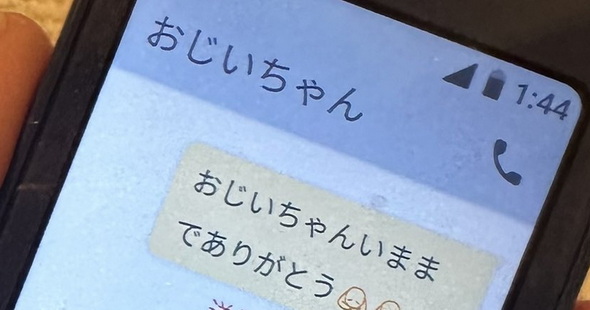 おじいちゃん
1:44
おじいちゃんいまま
でありがとう